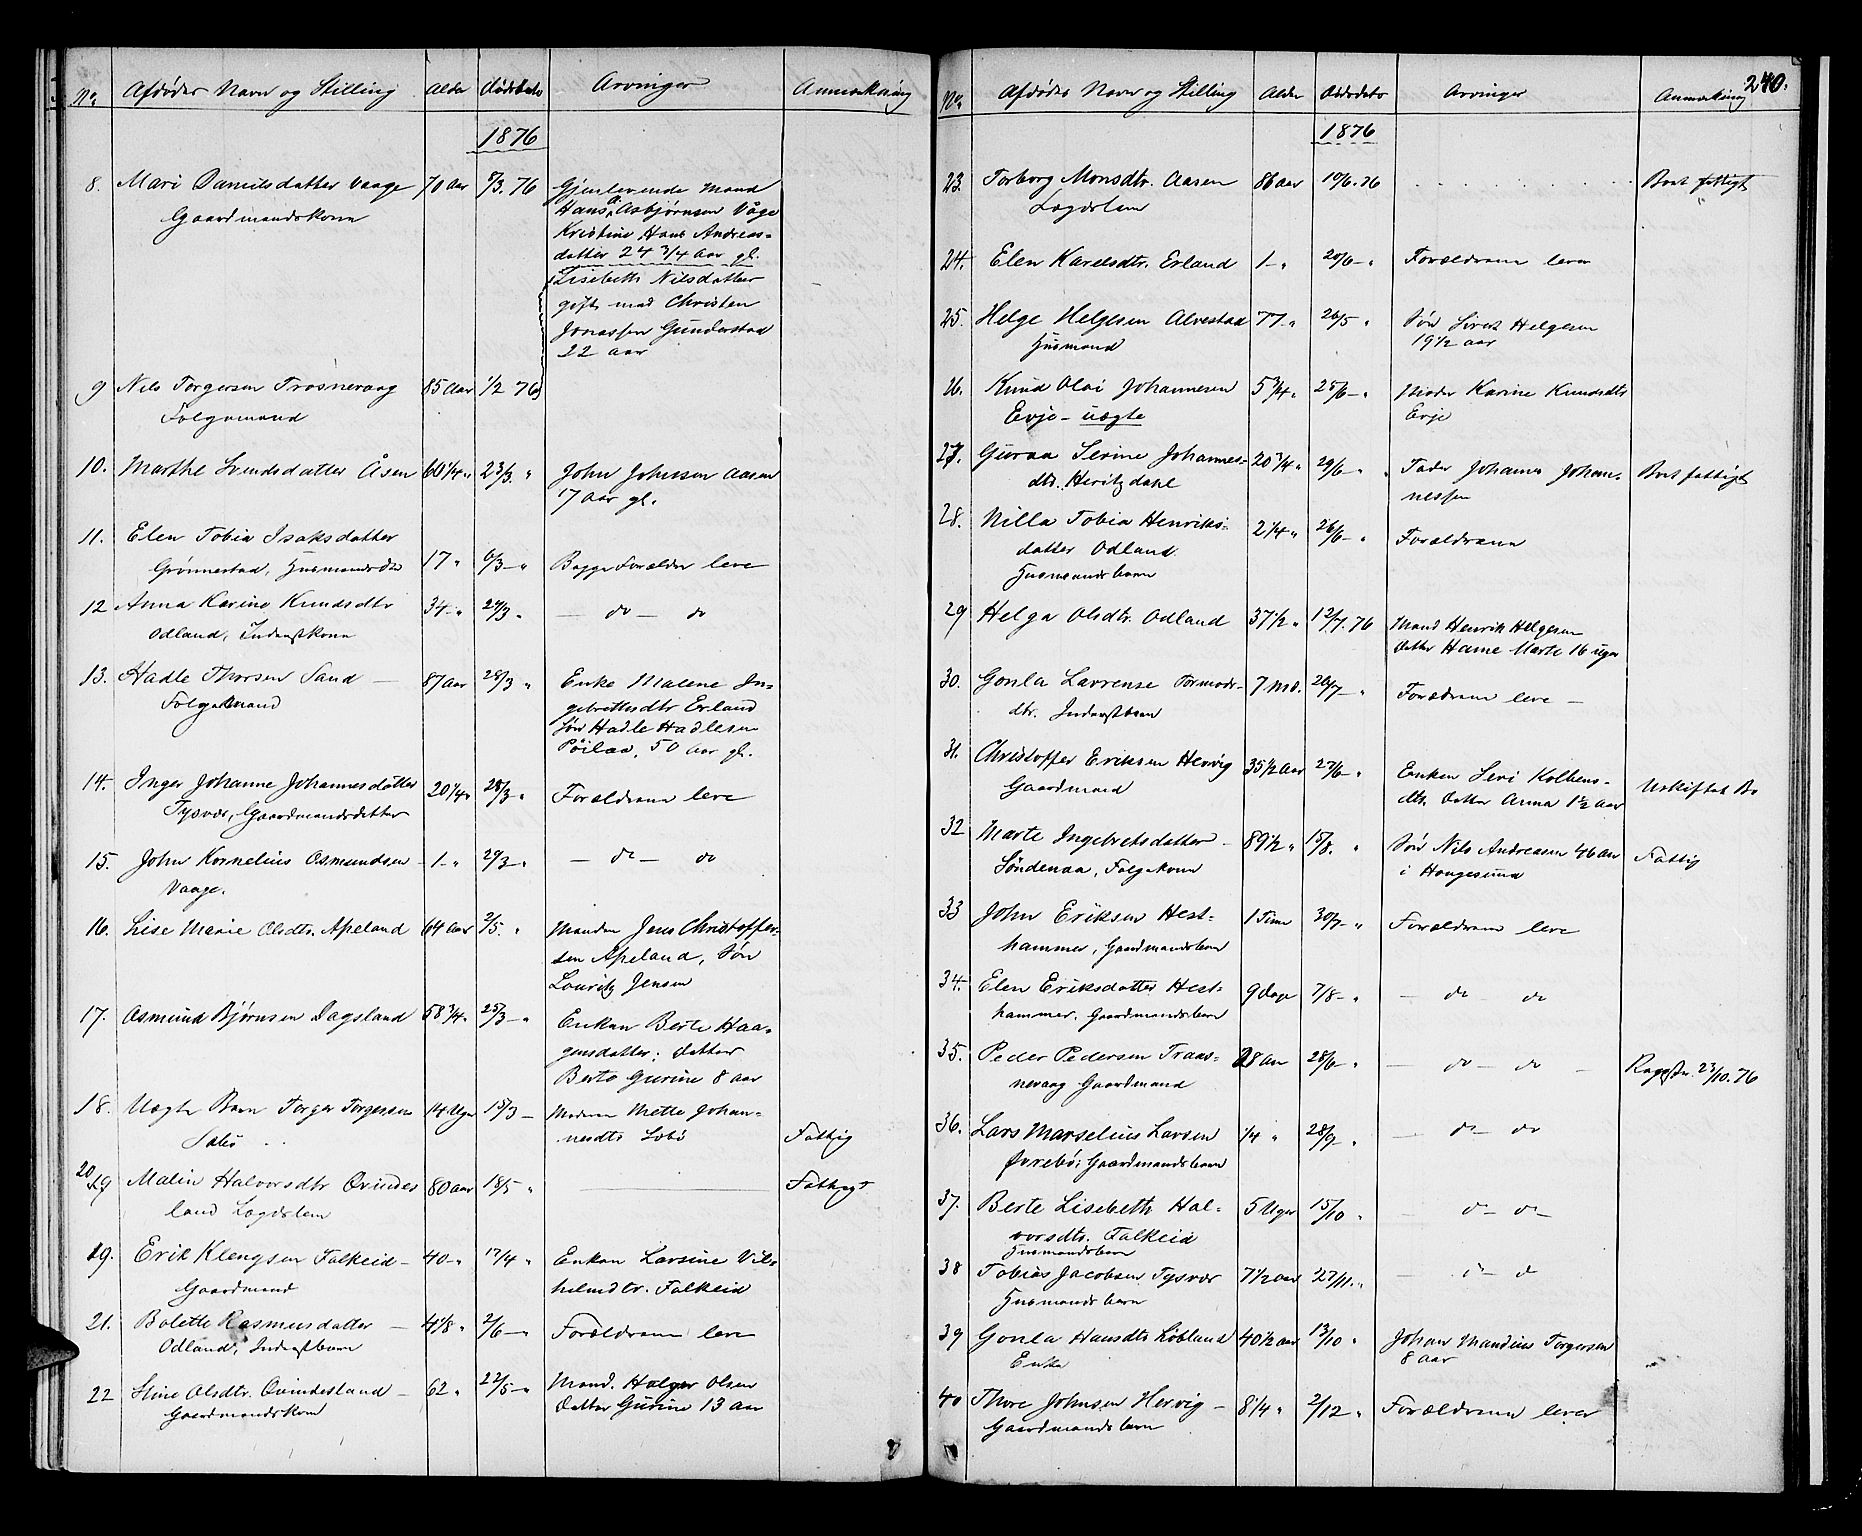 No. Afdødes Navn og Stilling Alder Dødsdato Arvinger Anmerkning
1876
8. Mari Danielsdatter Vaage 70 Aar 8/3. 76 Gjenlevende Mand
Gaardmandskone Hans A. Asbjørnsen Våge
Kristine Hans Andreas-
datter 24 3/4 Aar gl.
Lisebeth Nilsdatter
gift med Christen
Jonassen Gunderstad
22 aar
9 Nils Torgersen Trosnevaag 85 Aar 1/2 76
Folgemand
10. Marthe Svendsdatter Åsen 60 1/4 " 23/3. " John Johnsen Aasen
17 Aar gl.
11. Elen Tobia Isaksdatter
Grønnestad, Husmandsdtr 17 " 6/3 - " Begge Forældre leve
12 Anna Karine Knudsdtr 34 - " 24/3 " - do - do
Odland, Inderstkone
13. Hadle Thorsen Sand - 87 Aar 28/3 " Enke Malene In-
Folgemand gebretsdtr Erland
Søn Hadle Hadlesen
50 Aar gl.
14. Inger Johanne Johannesdatter 20 1/4 " 28/3 " Forældrene leve
Tysvær, Gaardmandsdatter
15. John Kornelius Osmundsen 1 - " 29/3 - " - do - do
Vaage.
16. Lise Marie Olsdtr. Apeland 64 Aar 2/5. " Manden Jens Christoffer-
sen Apeland, Søn
Louritz Jensen
17. Osmund Bjørnsen Dagsland 58 3/4 " 25/3 - " Enken Berte Haa-
gensdatter; Datter
Berte Gurine 8 aar
18. Uægte Barn Torger Torgersen 14 Uger 15/3 - Moderen Mette Johan-
nesdtr Fattig
20/19 Malin Halvorsdtr Qvindes 80 aar 18/5 " Fattigt
land Lægdslem
19. Erik Klengsen Falkeid - 40 - " 17/4 " Enken Larsine Vil-
Gaardmand helmdtr. Falkeid
21. Bolette Rasmusdatter - 4 1/8 " 2/6 - " Forældrene leve
Odland, Inderstbarn
22 Stine Olsdtr. Qvindesland - 62 " 22/5 - " Mand. Holger Olsen
Gaardmandskone Datter Gurine 13 aar
240.
No. Afdødes Navn og Stilling Alder Dødsdato Arvinger Anmerkning
1876
23. Torborg Monsdtr. Aasen 86 aar 10/6. 76 Boet fattigt
Lægdslem
24. Elen Karelsdtr. Erland 1 - " 20/6 - " Forældrene lever
25. Helge Helgesen Alvestad 77 - " 26/5 " Søn Sivert Helgesen
Husmand 19 1/2 aar
26. Knud Olai Johannesen 5 3/4 " 25/6 - " Moder Karine Knudsdtr
Evje - uægte Evje
27. Guraa Serine Johannes- 20 3/4 " 29/6 - " Fader Johannes Johan-
dtr. Heritzdahl nessen Boet fattigt
28. Nilla Tobia Henriks- 2 1/4 " 26/6 - " Forældrene
datter Odland
Husmandsbarn
29 Helga Olsdtr. Odland 37 1/2 " 12/7. 76 Mand Henrik Helgesen
datter Hanne Marte 16 uger
30. Gonla Lavrense Tormods- 7 Md. 26/7 - " Forældrene leve -
dtr. Inderstbarn
31. Christoffer Eriksen Hervig 35 1/2 Aar 27/6 - " Enken Siri Kolbens-
Gaardmand dtr. Datter Anna 1 1/2 aar Uskiftet Bo
32 Marte Ingebretsdatter - 89 1/2 " 15/8. " Søn Nils Andreasen 46 aar Fattig
Søndenaa, Folgekone i Haugesund
33 John Eriksen Hest- 1 Time 30/7 - " Forældrene leve
hammer, Gaardmandsbarn
34. Elen Eriksdatter Hest- 9 Dage 7/8 - " - do - do
hammer. Gaardmandsbarn
35. Peder Pedersen Traas- 28 Aar 28/6 - " - do - do -
nevaag Gaardmand 23/10. 76
36. Lars Marselius Larsen 1/4 " 28/9 - " - do - do
Øvrebø; Gaardmandsbarn
37. Berte Lisebeth Hal- 5 Uger 15/10 " - do - do -
vorsdtr. Falkeid
Husmandsbarn
38 Tobias Jacobsen Tysvær 7 1/2 aar 27/11. " - do - do
Husmandsbarn
39 Gonla Hansdtr Løbland 40 1/2 aar 13/10 " Johan Mandius Torgersen
Enke 8 aar
40 Thore Johnsen Hervig - 8 1/4 " 2/12 " Forældrene lever
Gaardmandsbarn